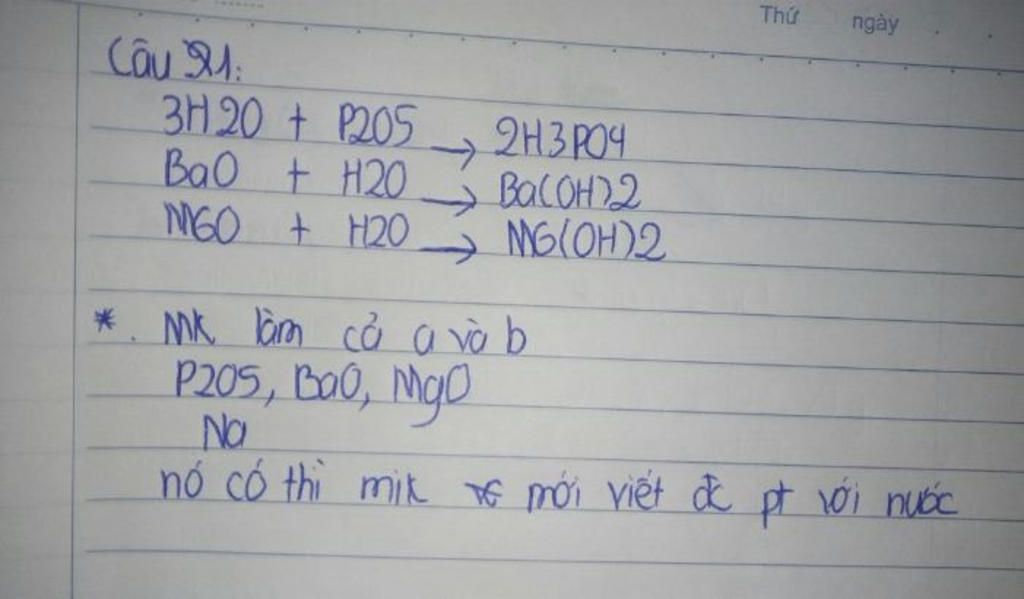 Thứ ngày
Câu 21:
3H2O + P2O5 → 2H3PO4
BaO + H2O → Ba(OH)2
MGO + H2O → MG(OH)2
*. Mk làm cả a và b
P2O5, BaO, MgO
Na
nó có thì mik mới viết đc pt với nước